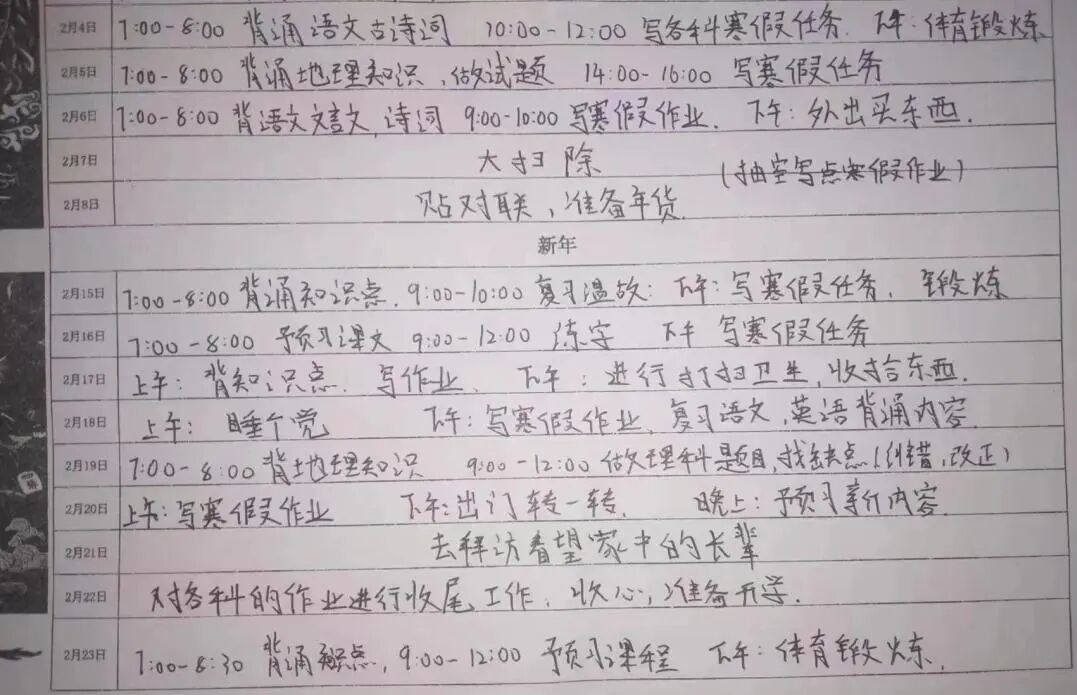 2月4日 7:00-8:00 背诵语文古诗词 10:00-12:00 写各科寒假任务. 下午:体育锻炼
2月5日 7:00-8:00 背诵地理知识,做试题 14:00-16:00 写寒假任务
2月6日 7:00-8:00 背语文文言文,诗词 9:00-10:00 写寒假作业. 下午:外出买东西.
2月7日 大扫除 (抽空写点寒假作业)
2月8日 贴对联,准备年货.
新年
2月15日 7:00-8:00 背诵知识点. 9:00-10:00 复习温故: 下午:写寒假任务. 锻炼
2月16日 7:00-8:00 预习课文 9:00-12:00 练字 下午 写寒假任务
2月17日 上午:背知识点. 写作业. 下午:进行打扫卫生,收拾东西.
2月18日 上午:睡个觉 下午:写寒假作业,复习语文,英语背诵内容.
2月19日 7:00-8:00 背地理知识 9:00-12:00 做理科题目,找缺点(纠错,改正)
2月20日 上午:写寒假作业 下午:出门转一转. 晚上:预习新内容.
2月21日 去拜访看望家中的长辈
2月22日 对各科的作业进行收尾工作. 收心,准备开学.
2月23日 7:00-8:30 背诵 点, 9:00-12:00 预习课程 下午:体育锻炼.